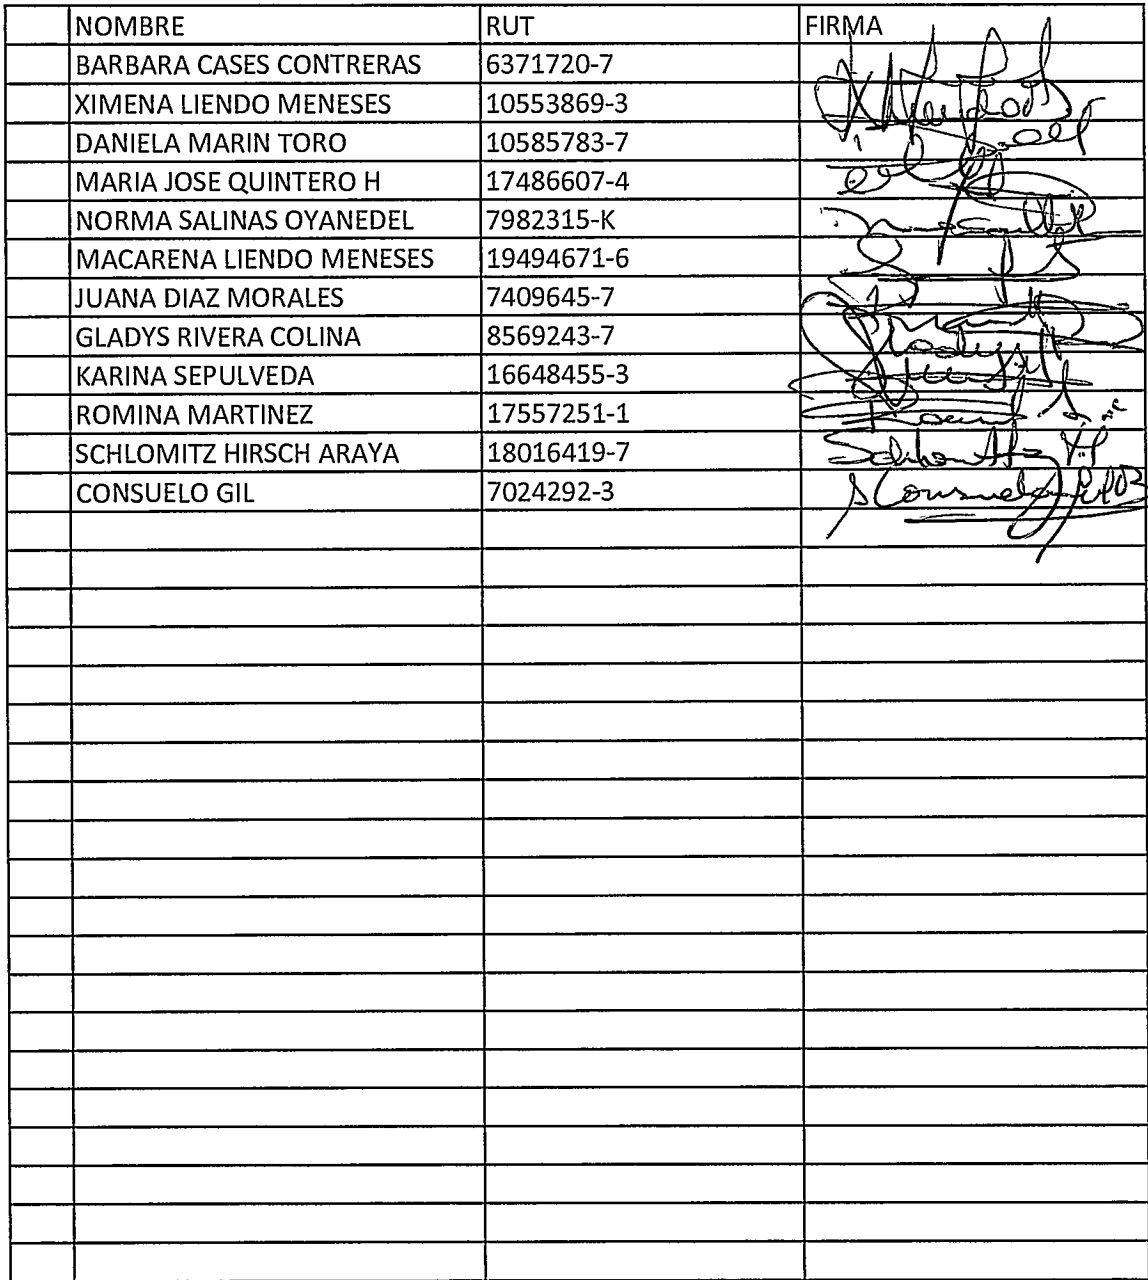 NOMBRE RUT FIRMA
BARBARA CASES CONTRERAS 6371720-7
XIMENA LIENDO MENESES 10553869-3
DANIELA MARIN TORO 10585783-7
MARIA JOSE QUINTERO H 17486607-4
NORMA SALINAS OYANEDEL 7982315-K
MACARENA LIENDO MENESES 19494671-6
JUANA DIAZ MORALES 7409645-7
GLADYS RIVERA COLINA 8569243-7
KARINA SEPULVEDA 16648455-3
ROMINA MARTINEZ 17557251-1
SCHLOMITZ HIRSCH ARAYA 18016419-7
CONSUELO GIL 7024292-3 Consuelo